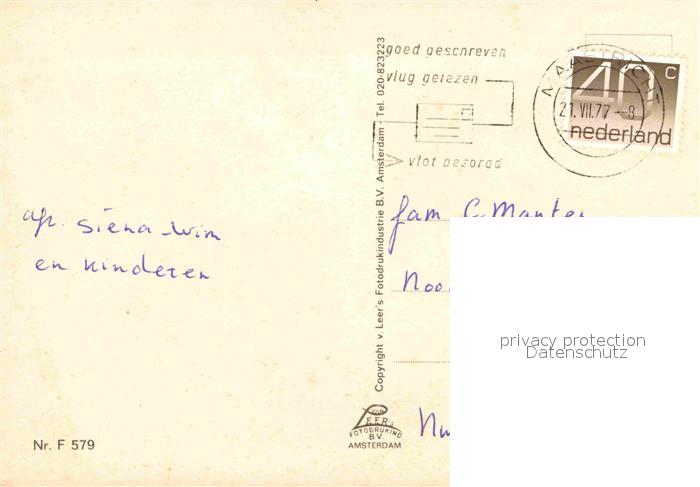 goed geschreven
vlug gelezen
vlot bezorgd
MAASTRICHT
21.VII.77 - 8
40 C
nederland
afz. Siena - Wim
en kinderen
fam C. Manter
Noo
Copyright v. Leer's Fotodrukindustrie B.V. Amsterdam - Tel. 020-823223
privacy protection
Datenschutz
Nr. F 579
VAN LEER'S
FOTODRUKIND
B.V.
AMSTERDAM